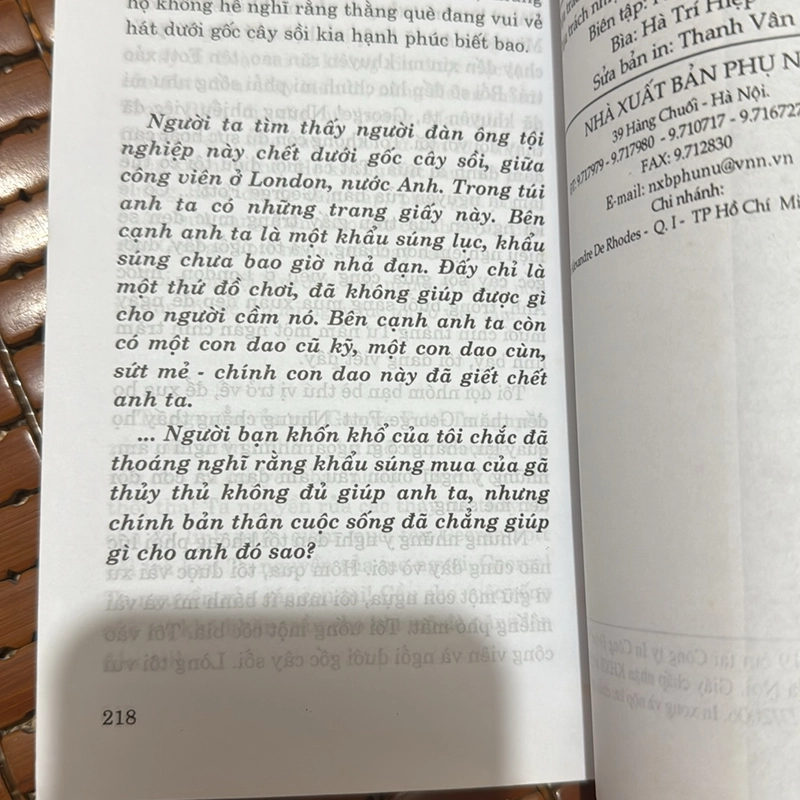 họ không hề nghĩ rằng thằng què đang vui vẻ
hát dưới gốc cây sồi kia hạnh phúc biết bao.
Người ta tìm thấy người đàn ông tội
nghiệp này chết dưới gốc cây sồi, giữa
công viên ở London, nước Anh. Trong túi
anh ta có những trang giấy này. Bên
cạnh anh ta là một khẩu súng lục, khẩu
súng chưa bao giờ nhả đạn. Đấy chỉ là
một thứ đồ chơi, đã không giúp được gì
cho người cầm nó. Bên cạnh anh ta còn
có một con dao cũ kỹ, một con dao cùn,
sứt mẻ - chính con dao này đã giết chết
anh ta.
... Người bạn khốn khổ của tôi chắc đã
thoáng nghĩ rằng khẩu súng mua của gã
thủy thủ không đủ giúp anh ta, nhưng
chính bản thân cuộc sống đã chẳng giúp
gì cho anh đó sao?
218
Biên tập:
Bìa: Hà Trí Hiếp
Sửa bản in: Thanh Vân
NHÀ XUẤT BẢN PHỤ N
39 Hàng Chuối - Hà Nội.
9.717979 - 9.717980 - 9.710717 - 9.716727
FAX: 9.712830
E-mail: nxbphunu@vnn.vn
Chi nhánh:
De Rhodes - Q. I - TP Hồ Chí Mi